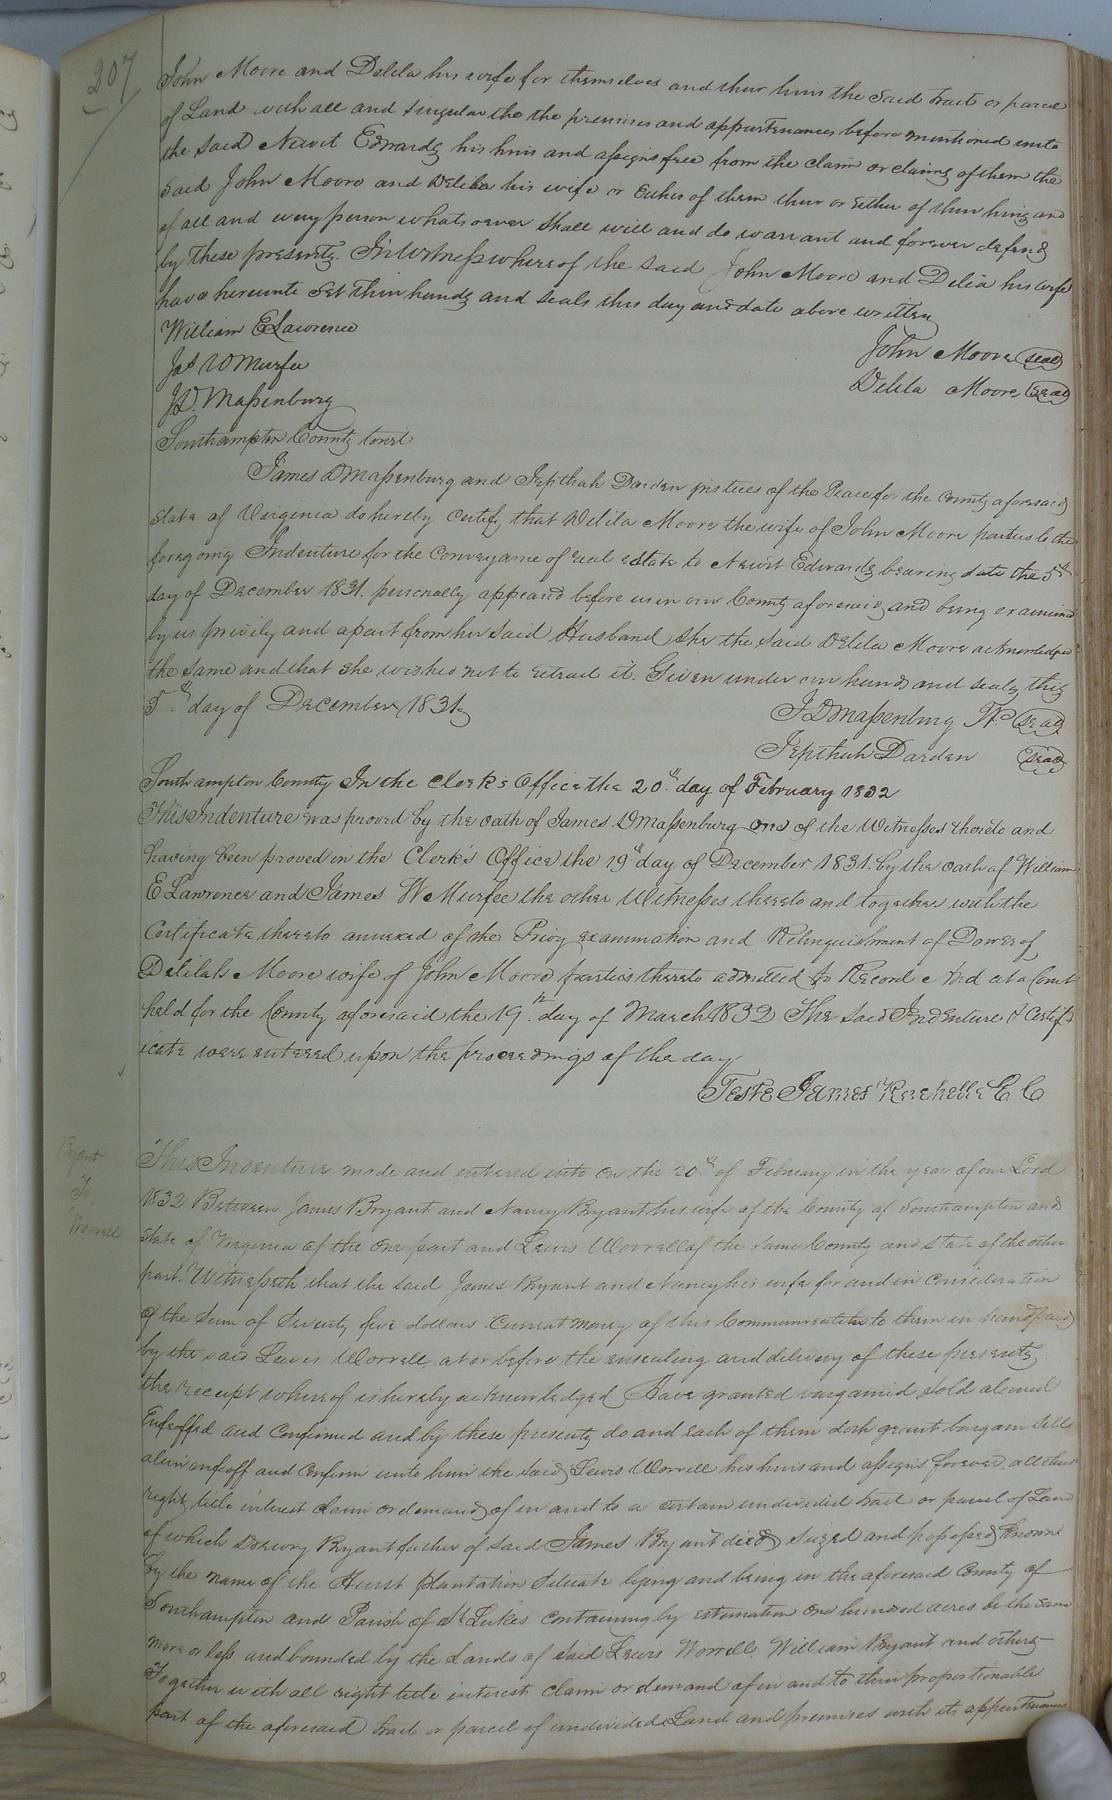 207
John Moore and Delila his wife for themselves and their heirs the Said tract or parcel
of Land with all and singular the the premises and appurtenances before mentioned unto
the Said Newit Edwards his heirs and assigns free from the claim or claims of them the
Said John Moore and Delila his wife or Either of them their or Either of their heirs and
of all and every person whatsoever Shall will and do warrant and forever defend
by these presents. In Witness whereof the said John Moore and Delia his wife
have hereunto Set their hands and seals this day and date above written
William E Lawrence
John Moore seal
Jas W Murfee
Delila Moore seal
J.D. Massenburg
Southampton County towit
James D Massenburg and Jepthah Darden justices of the Peace for the County aforesaid
State of Virginia do hereby Certify that Delila Moore the wife of John Moore parties to the
foregoing Indenture for the Conveyance of real estate to Newit Edwards bearing date the 5th
day of December 1831. personally appeared before us in our County aforesaid, and being examined
by us privily and apart from her Said Husband She the Said Delila Moore acknowledged
the same and that she wished not to retract it. Given under our hands and seals this
5th day of December 1831
J D Massenburg JP seal
Jepthah Darden seal
Southampton County In the Clerk's Office the 20th day of February 1832
This Indenture was proved by the oath of James D Massenburg one of the Witnesses thereto and
having been proved in the Clerk's Office the 19th day of December 1831. by the oath of William
E Lawrence and James W Murfee the other Witnesses thereto and together with the
Certificate thereto annexed of the Privy examination and Relinquishment of Dower of
Delilah Moore wife of John Moore parties thereto admitted to Record And at a Court
held for the County aforesaid the 19th day of March 1832 The Said Indenture & Certif
icate were entered upon the proceedings of the day
Teste James Rochelle C C
Bryant
To
Worrell
This Indenture made and entered into on the 20th of February in the year of our Lord
1832 Between James Bryant and Nancy Bryant his wife of the County of Southampton and
State of Virginia of the one part and Lewis Worrell of the same County and State of the other
part. Witnesseth that the said James Bryant and Nancy his wife for and in consideration
of the Sum of Seventy five dollars Current money of this Commonwealth to them in hand paid
by the said Lewis Worrell, at or before the ensealing and delivery of these presents
the receipt whereof is hereby acknowledged Have granted bargained Sold aliened
Enfeoffed and Confirmed and by these presents do and Each of them doth grant bargain Sell
alien enfeoff and Confirm unto him the said, Lewis Worrell his heirs and assigns forever, all their
right, title interest claim or demand of in and to a certain undivided tract or parcel of Land
of which Drewry Bryant father of said James Bryant died, Seized and possessed, known
by the name of the Hurst plantation Situate lying and being in the aforesaid County of
Southampton and Parish of St Lukes Containing by estimation One hundred acres be the same
more or less and bounded by the Lands of said Lewis Worrell, William Bryant and others
Together with all right title interest claim or demand of in and to their proportionable
part of the aforesaid tract or parcel of undivided Land and premises with its appurtenances